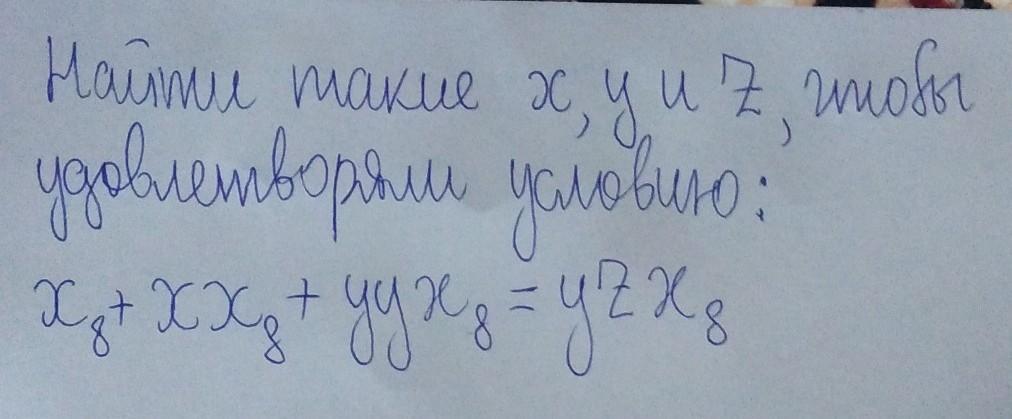 Найти такие x, y и z, чтобы
удовлетворяли условию:
x₈ + xx₈ + yyx₈ = yzx₈